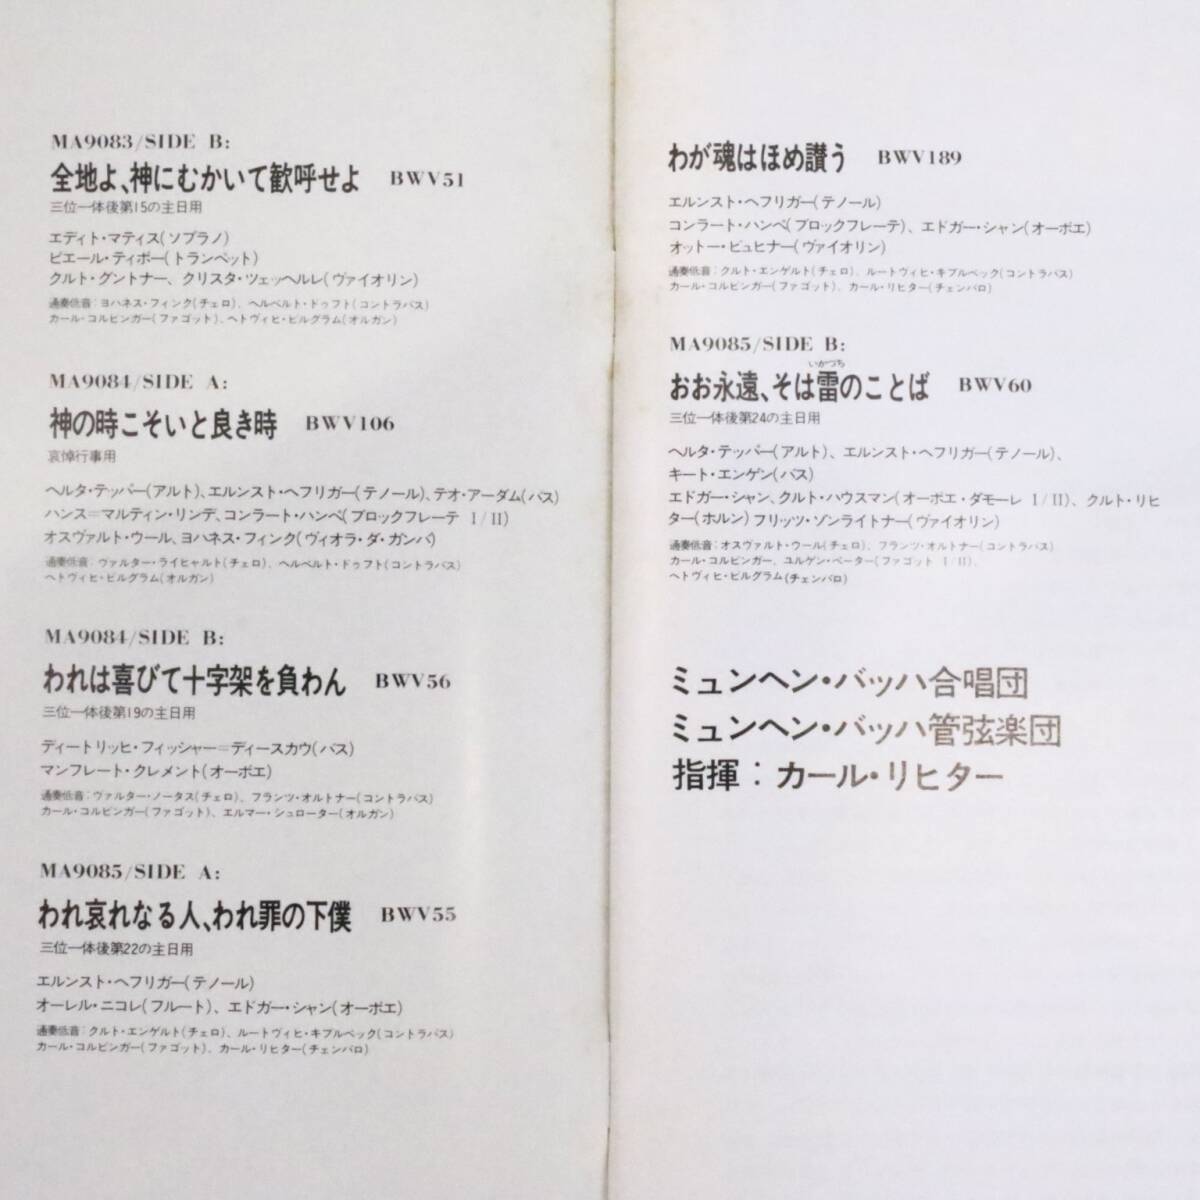 MA9083/SIDE B:
全地よ、神にむかいて歓呼せよ BWV51
三位一体後第15の主日用
エディト・マティス(ソプラノ)
ピエール・ティボー(トランペット)
クルト・グントナー、クリスタ・ツェッヘルレ(ヴァイオリン)
通奏低音:ヨハネス・フィンク(チェロ)、ヘルベルト・ドゥフト(コントラバス)
カール・コルビンガー(ファゴット)、ヘトヴィヒ・ビルグラム(オルガン)
MA9084/SIDE A:
神の時こそいと良き時 BWV106
哀悼行事用
ヘルタ・テッパー(アルト)、エルンスト・ヘフリガー(テノール)、テオ・アーダム(バス)
ハンス=マルティン・リンデ、コンラート・ハンペ(ブロックフレーテ I/II)
オスヴァルト・ウール、ヨハネス・フィンク(ヴィオラ・ダ・ガンバ)
通奏低音:ヴァルター・ライヒャルト(チェロ)、ヘルベルト・ドゥフト(コントラバス)
ヘトヴィヒ・ビルグラム(オルガン)
MA9084/SIDE B:
われは喜びて十字架を負わん BWV56
三位一体後第19の主日用
ディートリッヒ・フィッシャー=ディースカウ(バス)
マンフレート・クレメント(オーボエ)
通奏低音:ヴァルター・ノータス(チェロ)、フランツ・オルトナー(コントラバス)
カール・コルビンガー(ファゴット)、エルマー・シュローター(オルガン)
MA9085/SIDE A:
われ哀れなる人、われ罪の下僕 BWV55
三位一体後第22の主日用
エルンスト・ヘフリガー(テノール)
オーレル・ニコレ(フルート)、エドガー・シャン(オーボエ)
通奏低音:クルト・エンゲルト(チェロ)、ルートヴィヒ・キブルベック(コントラバス)
カール・コルビンガー(ファゴット)、カール・リヒター(チェンバロ)
わが魂はほめ讃う BWV189
エルンスト・ヘフリガー(テノール)
コンラート・ハンペ(ブロックフレーテ)、エドガー・シャン(オーボエ)
オットー・ビュヒナー(ヴァイオリン)
通奏低音:クルト・エンゲルト(チェロ)、ルートヴィヒ・キブルベック(コントラバス)
カール・コルビンガー(ファゴット)、カール・リヒター(チェンバロ)
MA9085/SIDE B:
いかづち
おお永遠、そは雷のことば BWV60
三位一体後第24の主日用
ヘルタ・テッパー(アルト)、エルンスト・ヘフリガー(テノール)、
キート・エンゲン(バス)
エドガー・シャン、クルト・ハウスマン(オーボエ・ダモーレ I/II)、クルト・リヒ
ター(ホルン)フリッツ・ゾンライトナー(ヴァイオリン)
通奏低音:オスヴァルト・ウール(チェロ)、フランツ・オルトナー(コントラバス)
カール・コルビンガー、ユルゲン・ペーター(ファゴット I/II)、
ヘトヴィヒ・ビルグラム(チェンバロ)
ミュンヘン・バッハ合唱団
ミュンヘン・バッハ管弦楽団
指揮:カール・リヒター